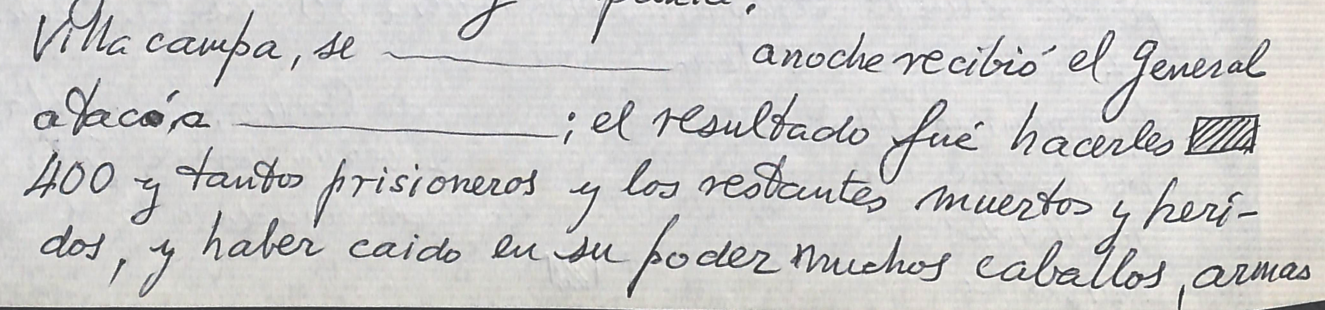 Villacampa, se ________ anoche recibió el General
atacó a ________ ; el resultado fué hacerles
400 y tantos prisioneros y los restantes muertos y heri-
dos, y haber caido en su poder muchos caballos, armas